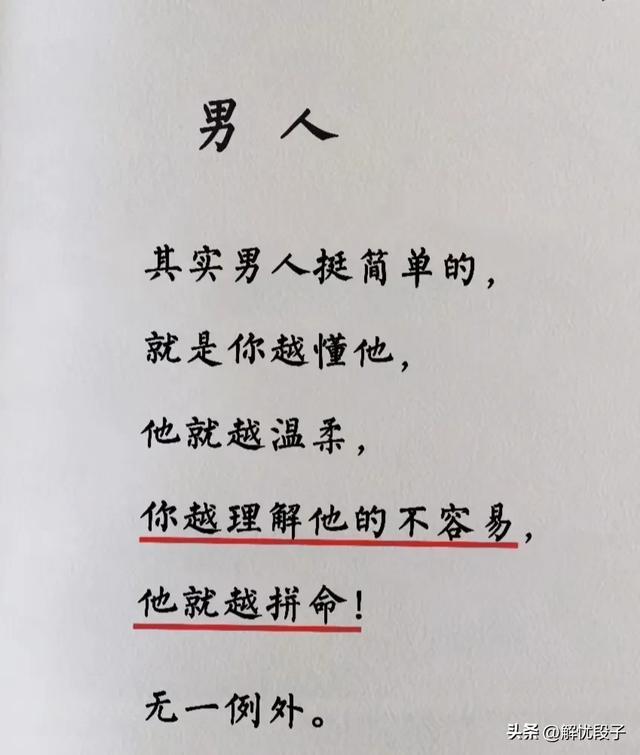 男人
其实男人挺简单的，
就是你越懂他，
他就越温柔，
你越理解他的不容易，
他就越拼命！
无一例外。
头条 @解忧段子